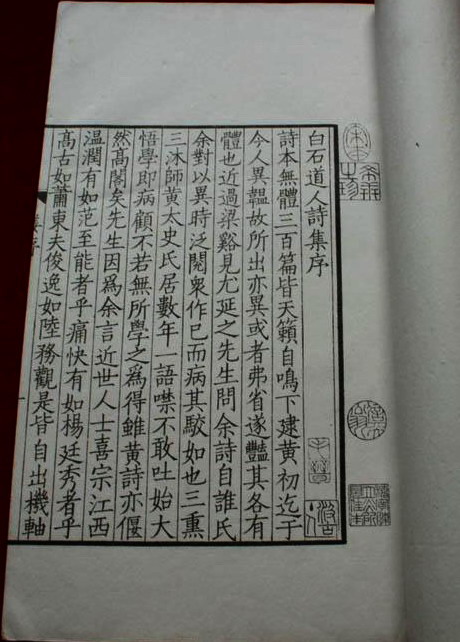 白石道人詩集序
詩本無體三百篇皆天籟自鳴下逮黃初迄于
今人異韞故所出亦異或者弗省遂豔其各有
體也近過梁谿見尤延之先生問余詩自誰氏
余對以異時泛閱衆作已而病其駁如也三熏
三沐師黃太史氏居數年一語噤不敢吐始大
悟學即病顧不若無所學之為得雖黃詩亦偃
然高閣矣先生因為余言近世人士喜宗江西
温潤有如范至能者乎痛快有如楊廷秀者乎
高古如蕭東夫俊逸如陸務觀是皆自出機軸